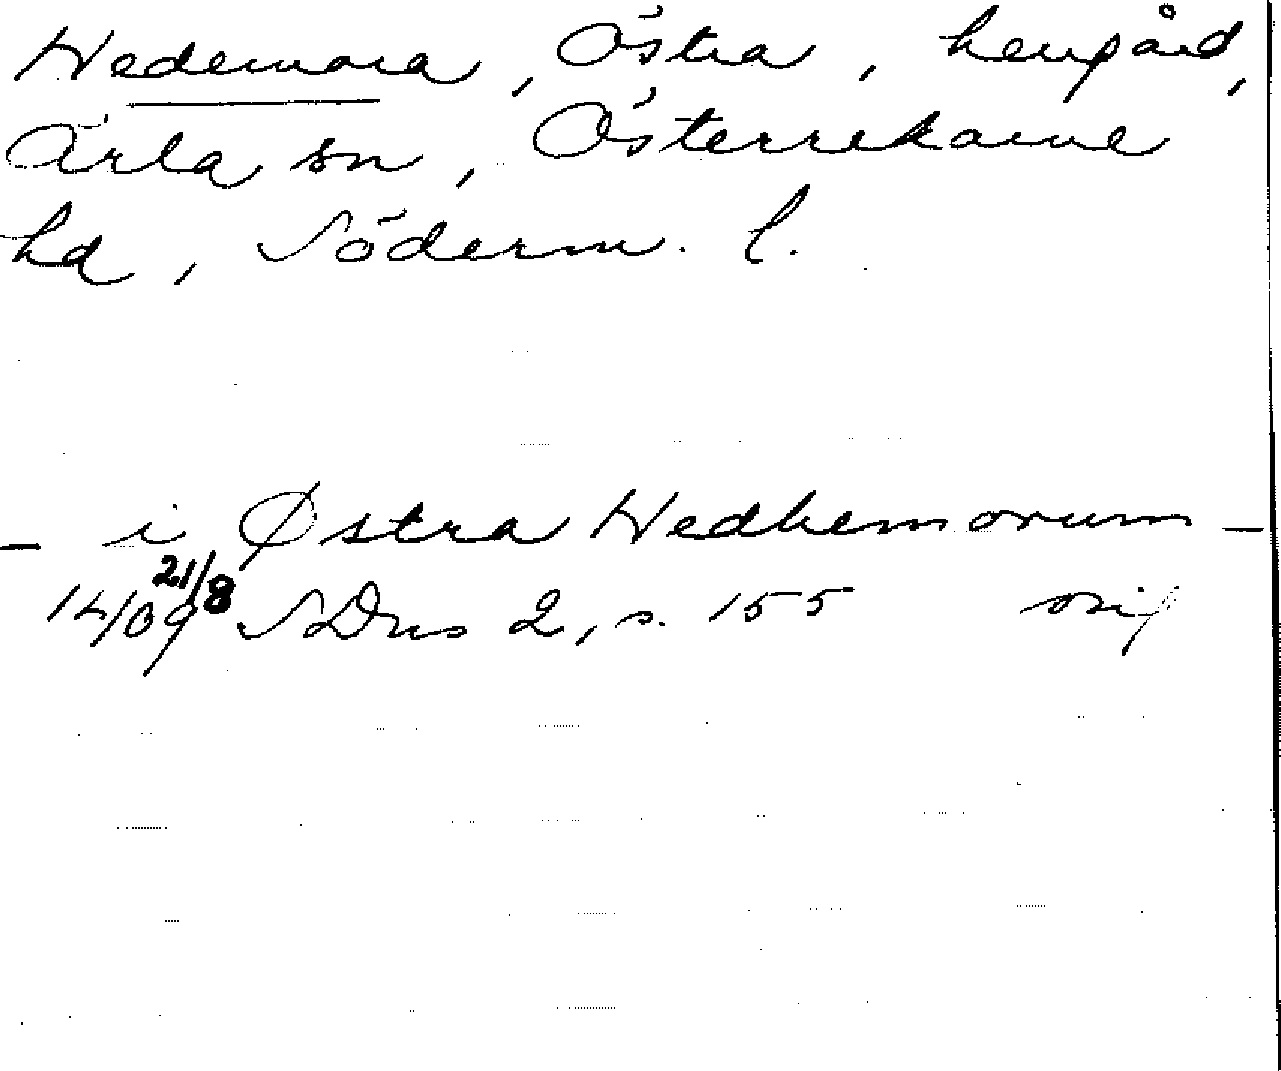 Hedemora, Östra, hemgård,
Ärla sn, Österrekarne
hd, Söderm. l.
— i Østra Hedhemorum —
21/8
1409 SDns 2, s. 155 orig